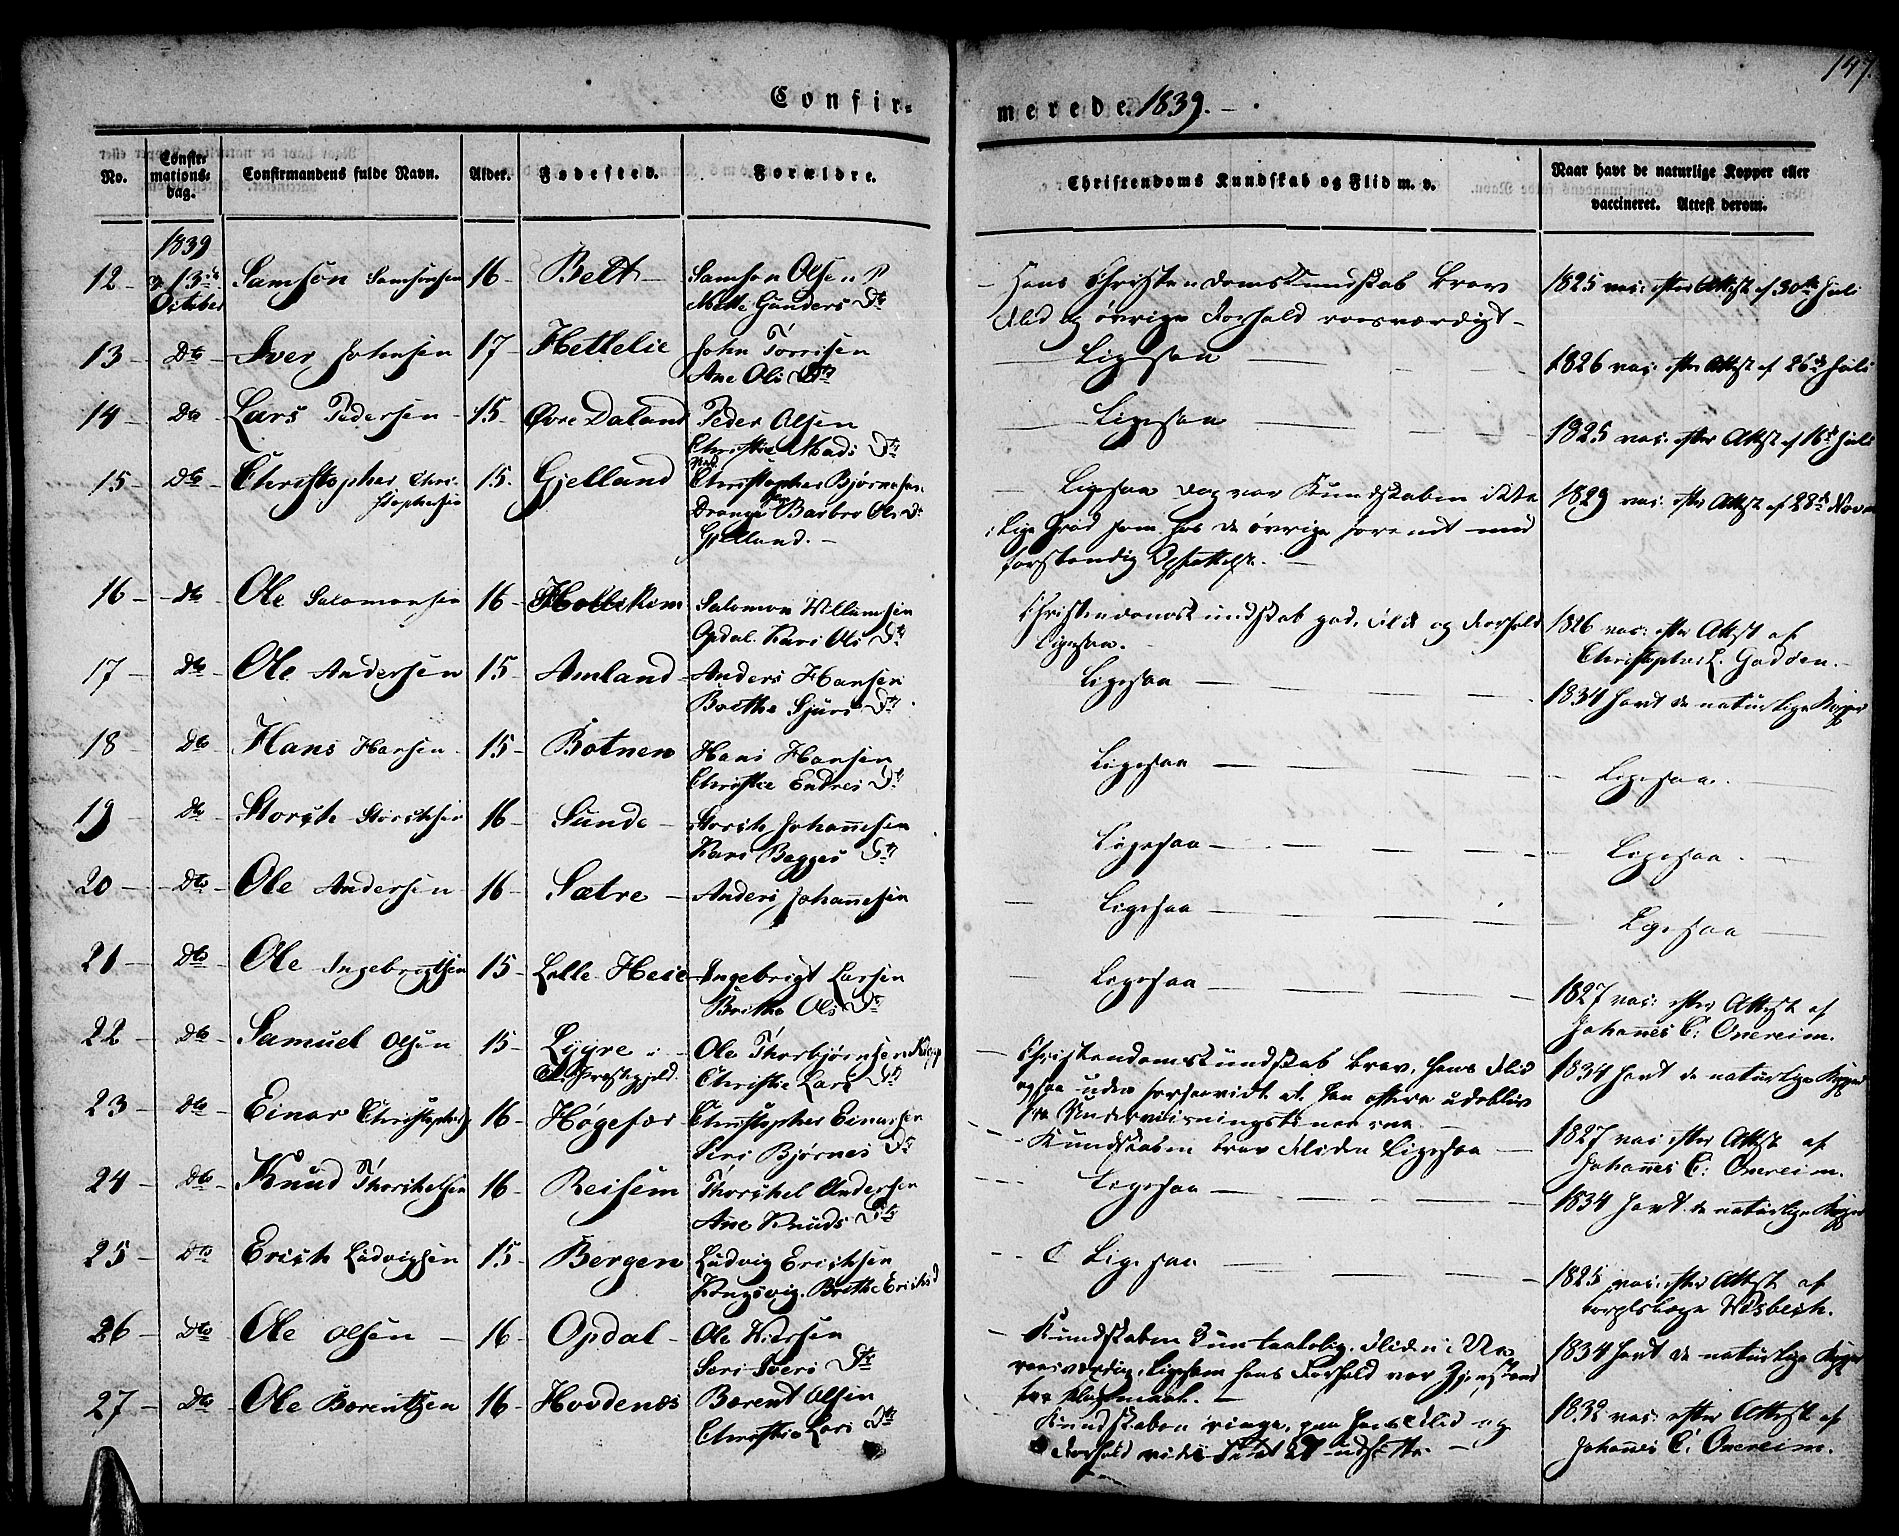 147.
Confir-
merede 1839.
No.
Confir
mations-
dag.
Confirmandens fulde Navn.
Alder.
Fødested.
Forældre.
Christendoms Kundskab og Flid m. v.
Naar havt de naturlige Kopper eller
vaccineret. Attest derom.
1839
12 - 13de October Samson Samsonsen 16 - Belt - Samson Olsen
Mette Gunders Dtr
Hans Christendomskundskab brav
Flid og øvrige Forhold roesværdigt -
1825 vac: efter Attest af 30te Juli
13 - Do Iver Johnsen 17 - Hettelie John Torrisen
Ane Ols Dtr
Ligesaa
1826 vac: efter Attest af 26de Juli
14 - Do Lars Pedersen - 15 - Øvre Daland Peder Olsen
Christie Mads Dtr
Ligesaa
1825 vac: efter Attest af 16de Juli
15 - Do Christopher Chri-
stophersen
15. Gjelland Christopher Bjørnesen
Drange Barbro Ols Dr
Gjelland. -
Ligesaa dog var Kundskaben ikke
i lige Grad som hos de øvrige forenet med
forstandig
1829 vac: efter Attest af 28de Novem
16 - Do Ole Salomonsen 16 - Salomon Willumsen
Opdal. Kari Ols Dtr
Christendomskundskab god, Flid og Forhold
Ligesaa. -
1826 vac: efter Attest af
Christopher L. Godøen. -
17 - Do Ole Andersen 15 - Amland - Anders Hansen
Brithe Sjurs Dtr
Ligesaa
1834 havt de naturlige Kopper
18 - Do Hans Hansen 15 - Botnen Hans Hansen
Christie Endres Dtr
Ligesaa
Ligesaa.
19 - Do Storch Storchsen 16 - Sunde - Storch Johannesen
Kari Bagges Dtr
Ligesaa
Ligesaa.
20 - Do Ole Andersen 16 - Sætre - Anders Johannesen
Ligesaa
Ligesaa
21 - Do Ole Ingebrigtsen 15 - Lille Heie Ingebrigt Larsen
Britha Ols Dtr
Ligesaa
1827 vac: efter Attest af
Johannes C: Onereim.
22 - Do Samuel Olsen 15 - Lygre i
Præstegjeld.
Ole Thorbjørnsen
Christie Lars Dtr
Christendomskundskab brav, hans Flid
ogsaa uden forsaavidt at han oftere udeblev
fra Underviisningstimerne.
1834 havt de naturlige Kopper
23 - Do Einar Christophers 16 - Høgefær Christopher Einarsen
Siri Bjørnes Dtr
Kundskaben brav Fliden Ligesaa
1827 vac: efter Attest af
Johannes C: Onereim.
24 - Do Knud Thorchelsen 16 - Reisem Thorchel Andersen
Ane Knuds Dtr
Ligesaa
1834 havt de naturlige Kopper
25 - Do Erich Ludvigsen 15 - Bergen Ludvig Erichsen
Kongsvig. Brithe Erichsd
Ligesaa
1825 vac: efter Attest af
Wisbech.
26 - Do Ole Olsen - 16 - Opdal - Ole Nielssen
Seri Ivers Dtr
Kundskaben kun taalelig. Fliden
roesværdig, Ligesom hans Forhold var Gjenstand
1834 havt de naturlige Kopper
27 - Do Ole Bærentsen 16 - Hovdenæs Bærent Olsen
Christie Lars Dtr
Kundskaben ringe, paa hans Flid og
Forhold
1832 vac: efter Attest af
Johannes C: Onereim.